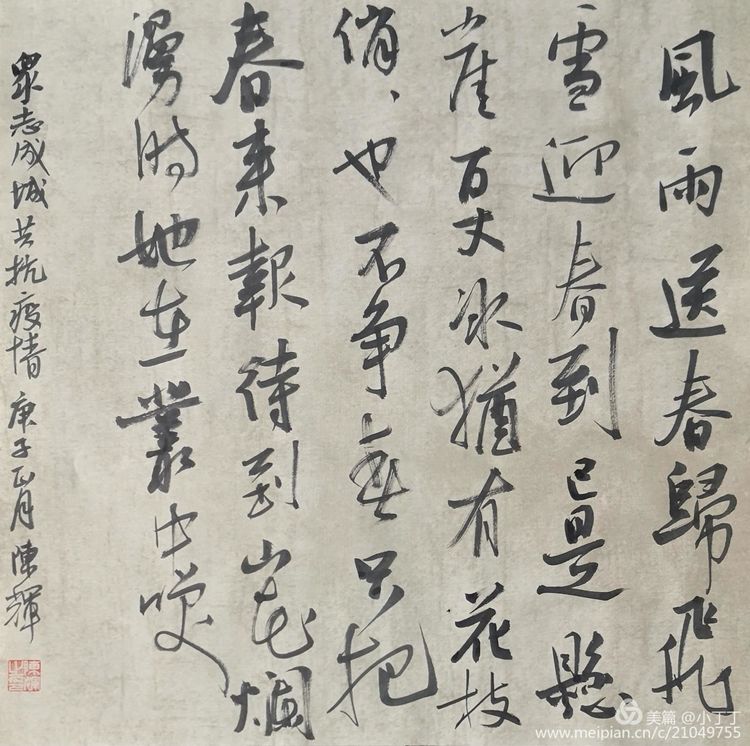 風雨送春歸飛
雪迎春到已是懸
崖百丈冰猶有花枝
俏、也不争春只把
春来報待到山花爛
漫时她在叢中咲
衆志成城共抗疫情 庚子正月 陳輝
美篇 @小丁丁
www.meipian.cn/c/21049755